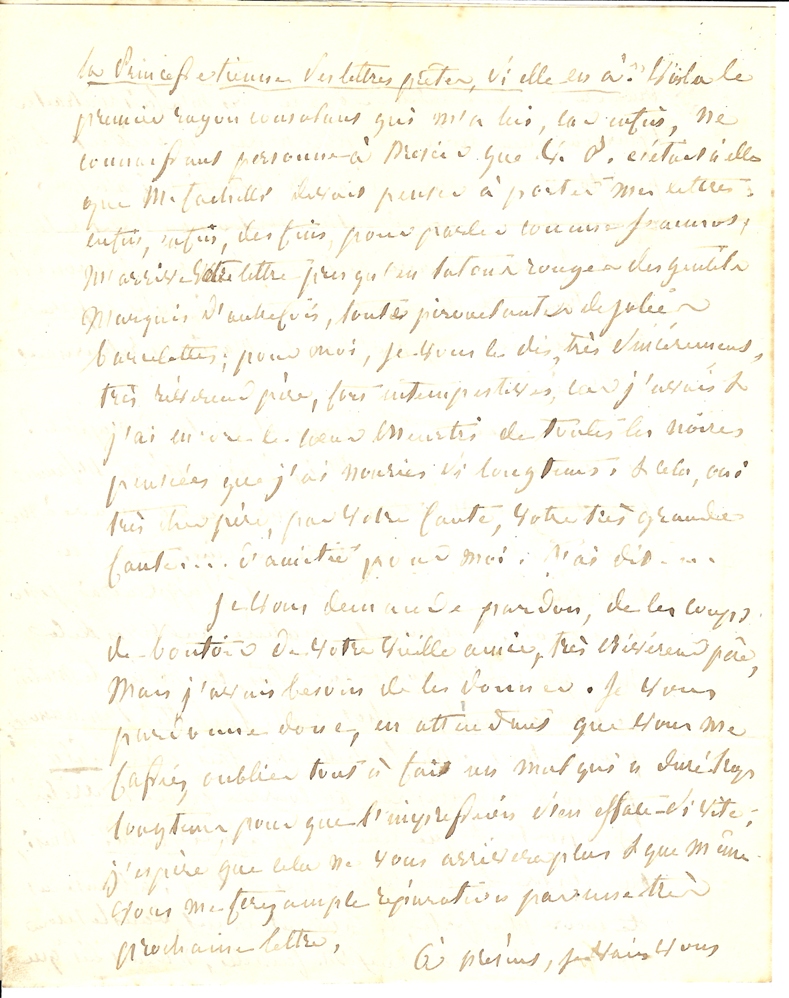 la Princesse tienne des lettres prêtes, si elle en a." Voila le
premier rayon consolant qui m'a lui, car enfin, ne
connaissant personne à que c'était à elle
que devait penser à porter mes lettres.
enfin, enfin, des fins, pour parler comme
M'arrive lettre presqu'en talons rouges des gentils
Marquis d'autrefois, toute pirouettante de jolies
; pour moi, je vous le dis, très sincèrement,
très révérend père, fort intempestives, car j'avais &
j'ai encore le cœur meurtri de toutes les noires
pensées que j'ai nourries si longtems. & cela, oui
très cher père, par votre faute, votre très grande
faute... d'amitié pour moi. J'ai dit - - -
Je vous demande pardon, de les coups
de boutoir de votre vieille amie, très révérend père,
Mais j'avais besoin de les donner. Je vous
pardonne donc, en attendant que vous me
fassiez oublier tout à fait un mal qui a duré trop
longtems pour que l'impression s'en efface si vite;
j'espère que cela ne vous arrivera plus & que même
vous me ferez ample réparation par une très
prochaine lettre.
à présent, je vais vous